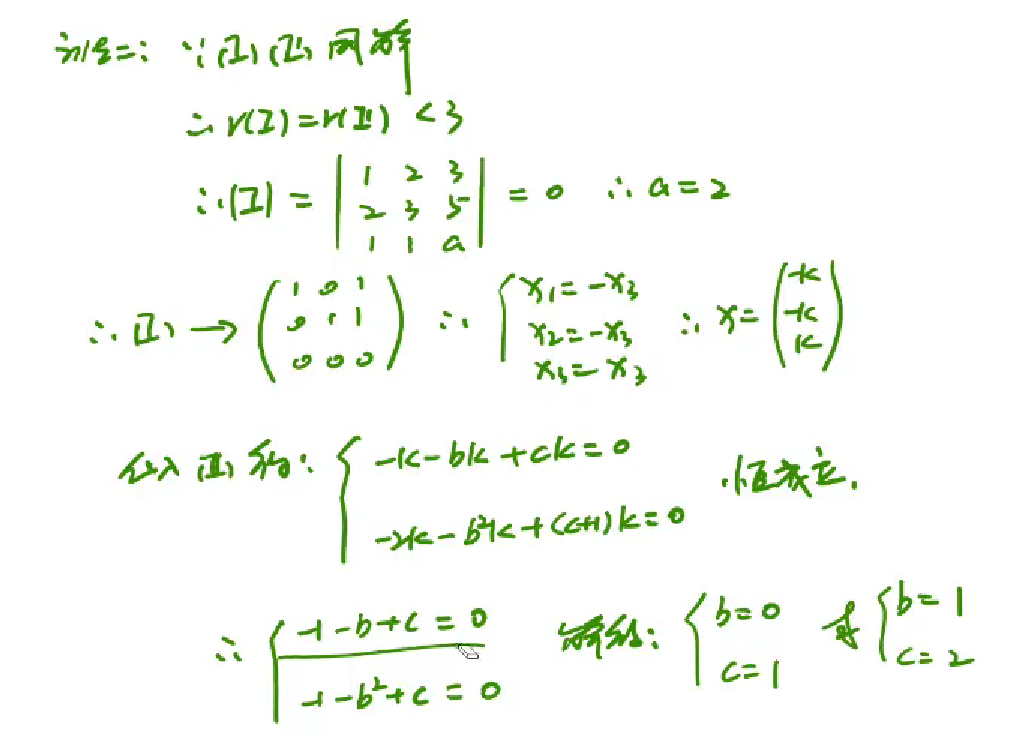 法二: ∵ (I) (II) 同解
∴ r(I) = r(II) < 3
∴ |I| = | 1 2 3 ; 2 3 5 ; 1 1 a | = 0 ∴ a = 2
∴ (I) → ( 1 0 1 ; 0 1 1 ; 0 0 0 ) ∴ { x₁ = -x₃ ; x₂ = -x₃ ; x₃ = x₃ ∴ x = ( -k ; -k ; k )
代入 (II) 得: { -k - bk + ck = 0 ; -2k - b²k + (c+1)k = 0 恒成立.
∴ { -1 - b + c = 0 ; -1 - b² + c = 0 解得: { b = 0 ; c = 1 或 { b = 1 ; c = 2